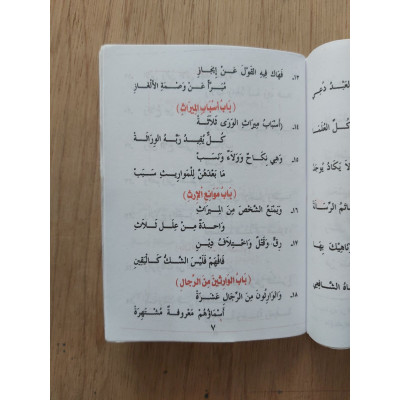 ١٣ـ فَهَاكَ فِيهِ القَوْلَ عَنْ إِيْجَازِ
مُبَرَّأً عَنْ وَصْمَةِ الأَلْغَازِ
(بَابُ أَسْبَابِ الْمِيرَاثِ)
١٤ـ أَسْبَابُ مِيرَاثِ الوَرَى ثَلَاثَةْ
كُلٌّ يُفِيدُ رَبَّهُ الوِرَاثَةْ
١٥ـ وَهْيَ نِكَاحٌ وَوَلَاءٌ وَنَسَبْ
مَا بَعْدَهُنَّ لِلْمَوَارِيثِ سَبَبْ
(بَابُ مَوَانِعِ الْإِرْثِ)
١٦ـ وَيَمْنَعُ الشَّخْصَ مِنَ المِيرَاثِ
وَاحِدَةٌ مِنْ عِلَلٍ ثَلَاثِ
١٧ـ رِقٌّ وَقَتْلٌ وَاخْتِلَافُ دِيْنِ
فَافْهَمْ فَلَيْسَ الشَّكُّ كَالْيَقِينِ
(بَابُ الوَارِثِينَ مِنَ الرِّجَالِ)
١٨ـ وَالوَارِثُونَ مِنَ الرِّجَالِ عَشَرَةْ
أَسْمَاؤُهُمْ مَعْرُوفَةٌ مُشْتَهِرَةْ
٧
كُلِّ العُلَمَا
لَا يَكَادُ يُوجَدُ
خَاتَمُ الرِّسَالَةْ
نَاهِيكَ بِهَا